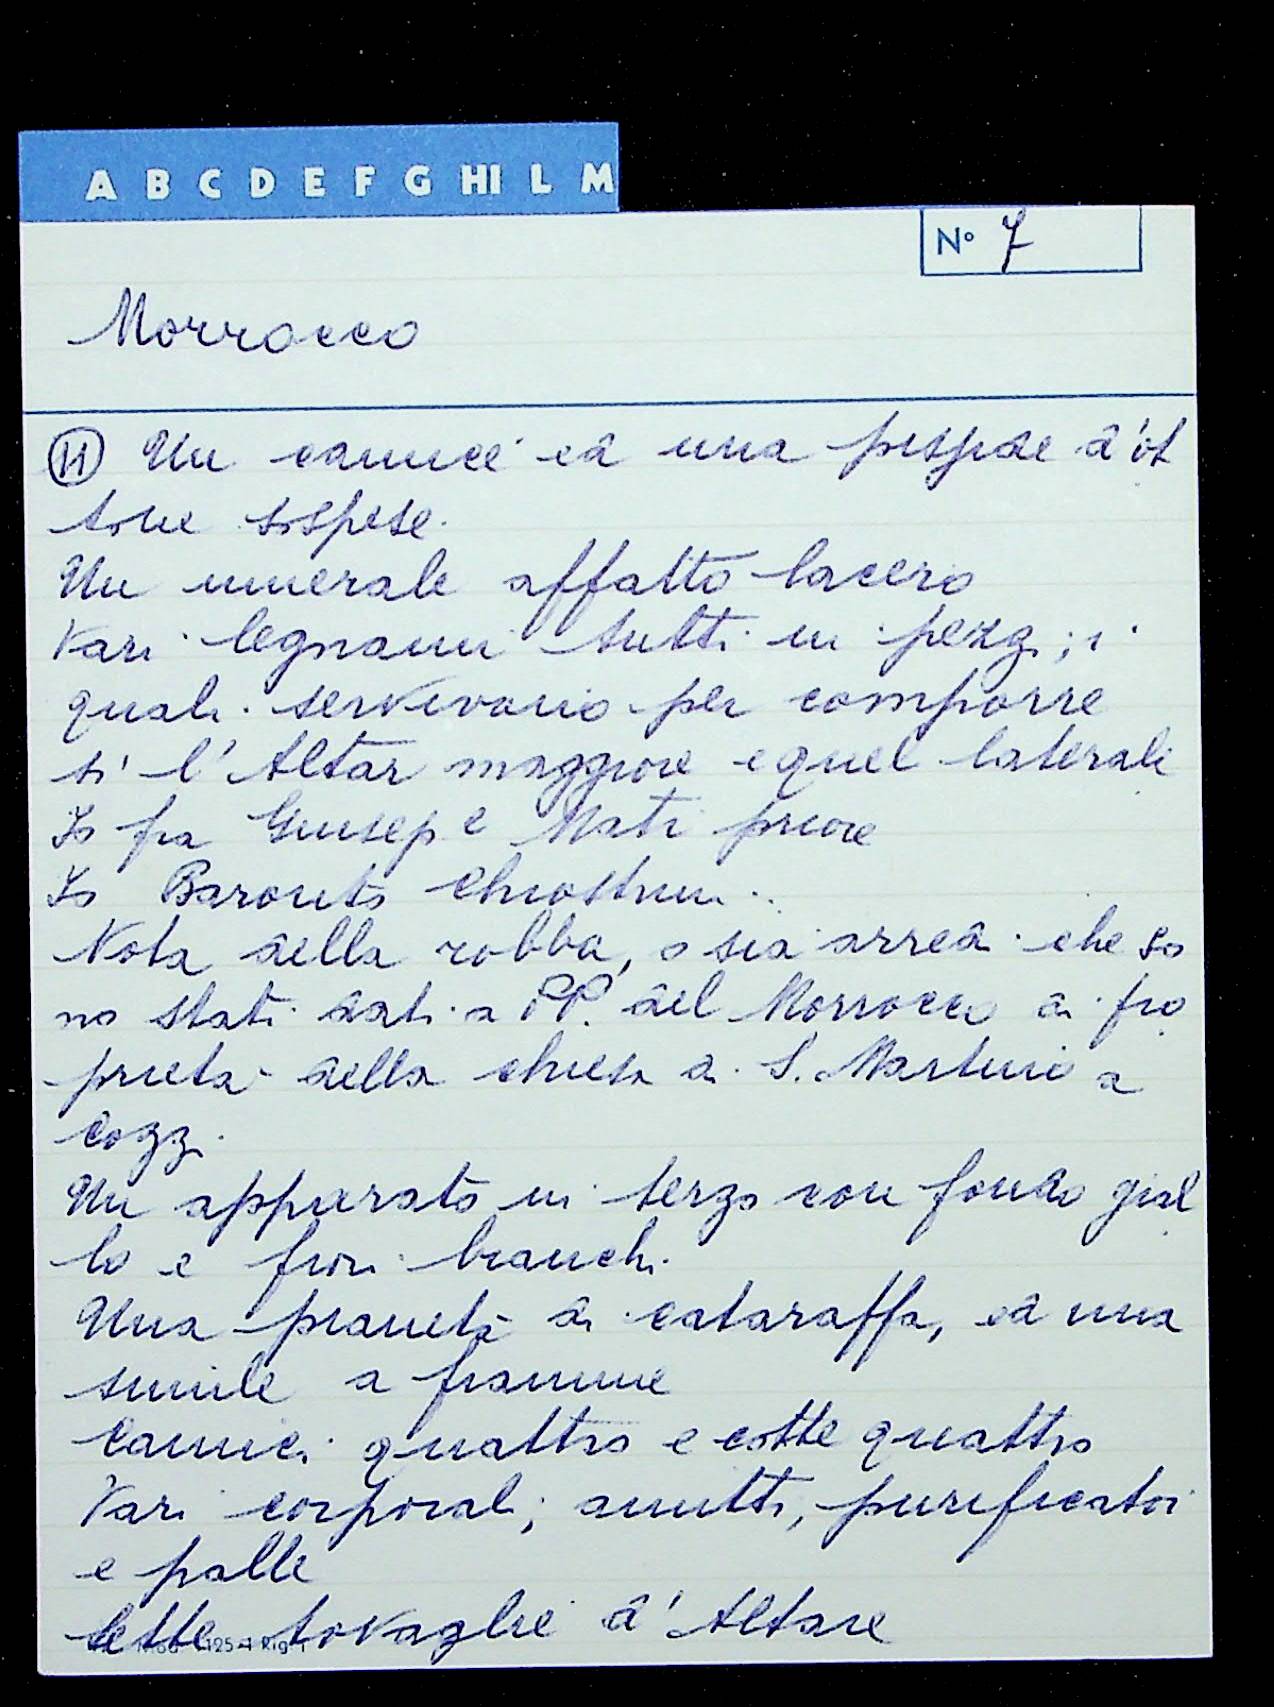 A B C D E F G HI L M
N° 7
Morrocco
11 Un camice ed una pisside d'ot
tone sospese.
Un umerale affatto lacero
Vari legnami tutti in pezzi; i
quali servivano per comporre
si l'Altar maggiore e quel laterale
Io fra Giusep e Nati priore
Io Baronto Chiostrini
Nota della robba, o sia arredi che so
no stati dati a PP. del Morrocco di pro
prieta della chiesa di S. Martino a
Cozzi
Un apparato in terzo con fondo gial
lo e fiori bianchi.
Una pianeta di cataraffa, ed una
simile a fiamme
Camici quattro e cotte quattro
Vari corporali; amitti, purificatoi
e palle
Sette tovaglie d'Altare